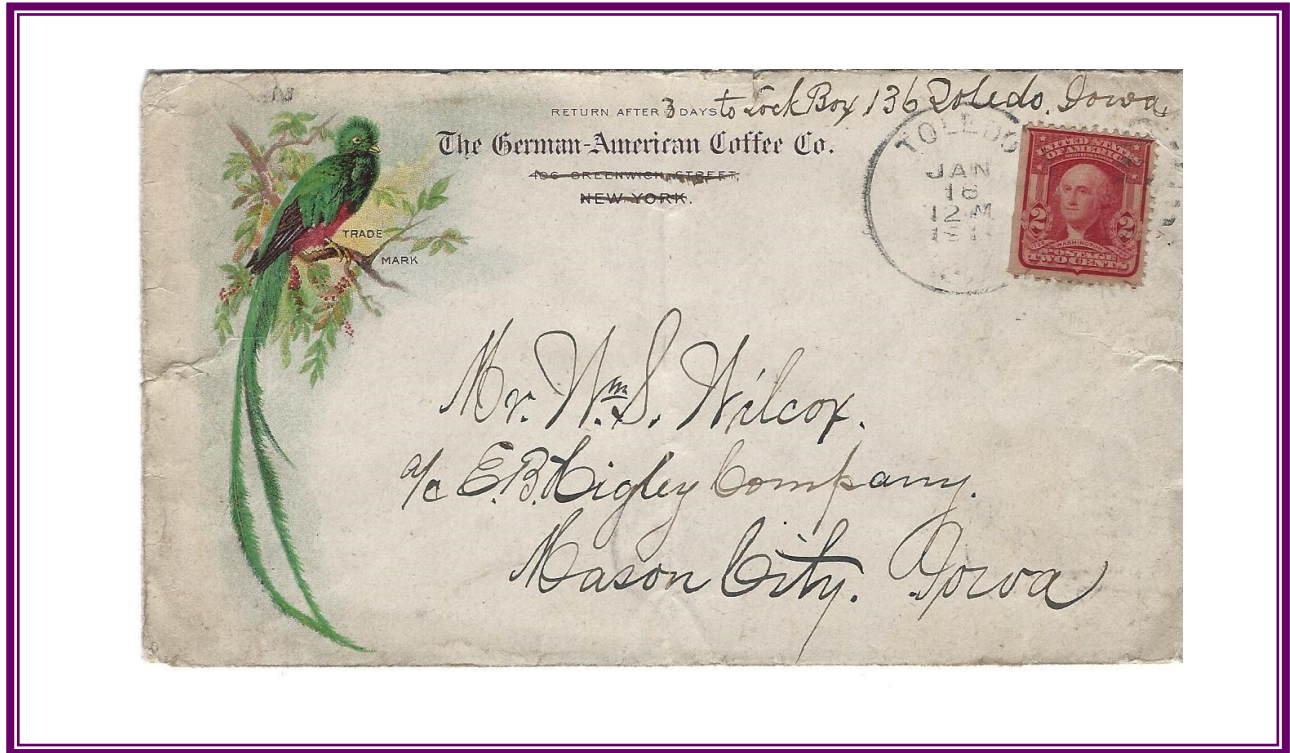 RETURN AFTER 3 DAYS to Lock Box 136 Toledo, Iowa
The German-American Coffee Co.
106 GREENWICH STREET,
NEW YORK.
TRADE
MARK
TOLEDO
JAN
16
12 M
UNITED STATES
OF AMERICA
2 2
WASHINGTON
POSTAGE
TWO CENTS
Mr. Wm S. Wilcox.
a/c E.B. Higley Company.
Mason City. Iowa